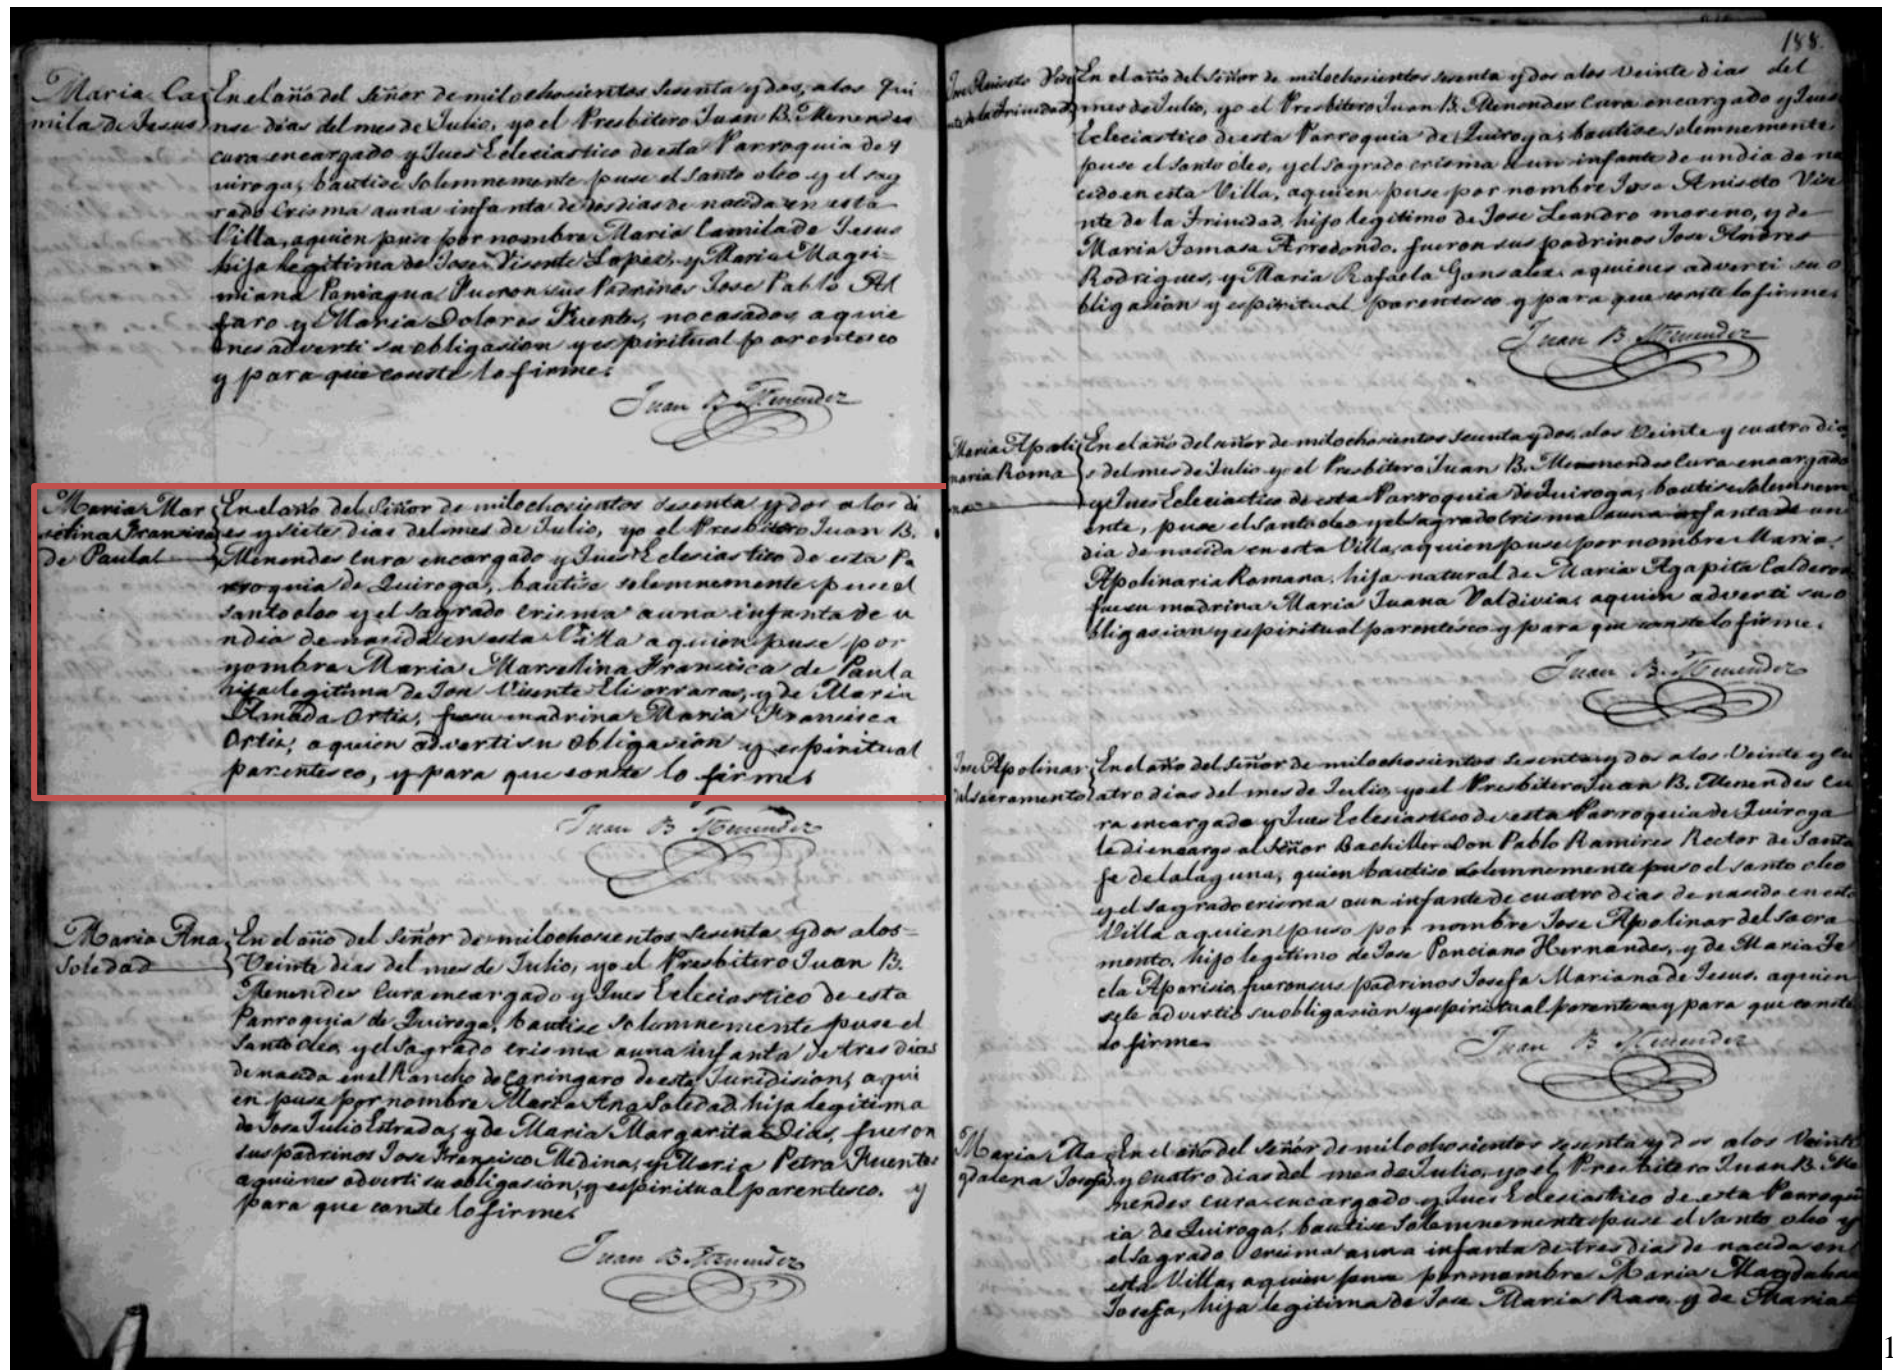 Maria Ca
mila de Jesus
En el año del Señor de milochosientos sesenta y dos, alos qui
nse dias del mes de Julio, yo el Presbitero Juan B. Menendes
cura encargado y Jues Eclesiastico de esta Parroquia de Q
uiroga, bautisé solemnemente puse el santo oleo y el sag
rado Crisma auna infanta de dos dias de nasida en esta
Villa, aquien puse por nombre Maria Camila de Jesus
hija legitima de Jose Visente Lopez, y Maria Magsi=
miana Paniagua, Fueron sus Padrinos Jose Pablo Al
faro y Maria Dolores Fuentes, no casados aquie
nes adverti su obligasion y espiritual parentesco
y para que conste lo firme.
Juan B Menendez
Maria Mar
selina Fransisca
de Paula
En el año del Señor de milochosientos sesenta y dos alos di
es y siete dias del mes de Julio, yo el Presbitero Juan B.
Menendes Cura encargado y Jues Eclesiastico de esta Pa
rroquia de Quiroga, bautise solemnemente puse el
santo oleo y el sagrado Crisma auna infanta de u
ndia de nasida en esta Villa aquien puse por
nombre Maria Marselina Francisca de Paula
hija legitima de Jose Visente Elisarraras, y de Maria
Amada Ortis, fue su madrina Maria Francisca
Ortis, aquien adverti su obligasion y espiritual
parentesco, y para que conste lo firme.
Juan B Menendez
Maria Ana
Soledad
En el año del Señor de milochosientos sesenta y dos alos=
Veinte dias del mes de Julio, yo el Presbitero Juan B.
Menendes Cura encargado y Jues Eclesiastico de esta
Parroquia de Quiroga, bautise solemnemente puse el
santo oleo, y el sagrado crisma auna infanta de tres dias
de nasida en el Rancho de Caringaro de esta Juridision, aqui
en puse por nombre Maria Ana Soledad hija legitima
de Jose Julio Estrada, y de Maria Margarita Dias, fueron
sus padrinos Jose Francisco Medina, y Maria Petra Fuentes
aquienes adverti su obligasion, y espiritual parentesco. y
para que conste lo firme.
Juan B. Menendez
188.
Jose Aniseto Vise
nte de la Trinidad
En el año del Señor de milochosientos sesenta y dos alos Veinte dias del
mes de Julio, yo el Presbitero Juan B. Menendes Cura encargado y Jues
Eclesiastico de esta Parroquia de Quiroga, bautise solemnemente
puse el santo oleo, y el sagrado crisma aun infante de un dia de na
cido en esta Villa, aquien puse por nombre Jose Aniseto Vise
nte de la Trinidad, hijo legitimo de Jose Leandro moreno, y de
Maria Tomasa Arredondo. fueron sus padrinos Jose Andres
Rodrigues, y Maria Rafaela Gonsales. aquienes adverti su o
bligasion y espiritual parentesco y para que conste lo firme.
Juan B Menendez
Maria Apoli
naria Roma
na
En el año del señor de milochosientos sesenta y dos, alos Veinte y cuatro dia
s del mes de Julio yo el Presbitero Juan B. Menendes Cura encargado
y Jues Eclesiastico de esta Parroquia de Quiroga, bautise solemnem
ente, puse el santo oleo y el sagrado Crisma auna infanta de un
dia de nasida en esta Villa, aquien puse por nombre Maria
Apolinaria Romana. hija natural de Maria Agapita Calderon
fue su madrina Maria Juana Valdivia, aquien adverti su o
bligasion y espiritual parentesco y para que conste lo firme.
Juan B. Menendez
Jose Apolinar
del sacramento
En el año del Señor de milochosientos sesenta y dos alos Veinte y cu
atro dias del mes de Julio, yo el Presbitero Juan B. Menendes Cu
ra encargado y Jues Eclesiastico de esta Parroquia de Quiroga
le di encargo al Señor Bachiller Don Pablo Ramires Rector de Santa
fe de la laguna, quien bautiso solemnemente puso el santo oleo
y el sagrado crisma aun infante de cuatro dias de nasido en esta
Villa aquien puso por nombre Jose Apolinar del Sacra
mento. hijo legitimo de Jose Ponciano Hernandes, y de Maria Te
cla Aparisio, fueron sus padrinos Josefa Mariana de Jesus. aquien
sele advertio su obligasion y espiritual parentesco y para que conste
lo firme.
Juan B Menendez
Maria Ma
gdalena Josefa
En el año del Señor de milochosientos sesenta y dos alos Veinte
y cuatro dias del mes de Julio, yo el Presbitero Juan B. Me
nendes cura encargado y Jues Eclesiastico de esta Parroqu
ia de Quiroga, bautise solemnemente puse el santo oleo y
el sagrado crisma auna infanta de tres dias de nasida en
esta Villa, aquien puse por nombre Maria Magdalena
Josefa, hija legitima de Jose Maria Raso, y de Maria
1